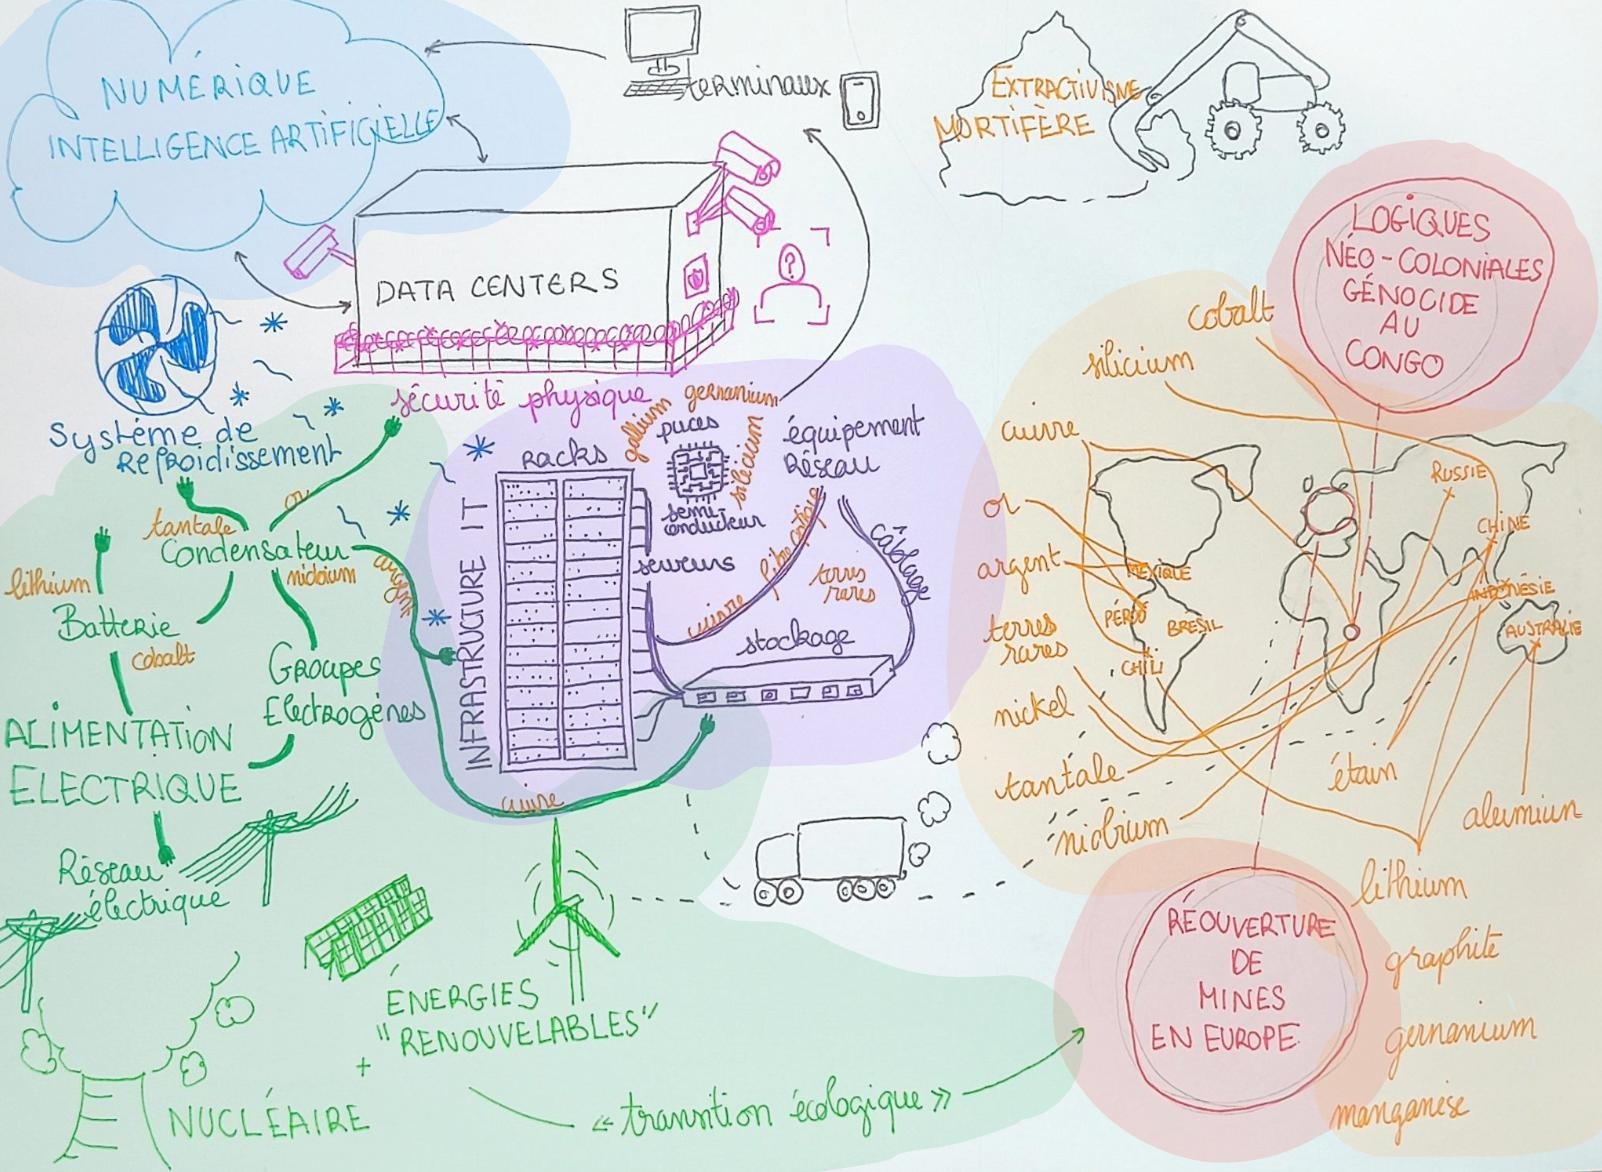 NUMÉRIQUE
INTELLIGENCE ARTIFICIELLE
terminaux
EXTRACTIVISME
MORTIFÈRE
DATA CENTERS
sécurité physique
Système de
Refroidissement
or
tantale
Condensateur
niobium
argent
lithium
Batterie
cobalt
Groupes
Electrogènes
ALIMENTATION
ELECTRIQUE
Réseau
électrique
INFRASTRUCTURE IT
racks
gallium
germanium
silicium
puces
semi
conducteur
équipement
Réseau
serveurs
cuivre
fibre optique
terres
rares
câblage
stockage
cuivre
ÉNERGIES
"RENOUVELABLES"
+
NUCLÉAIRE
« transition écologique »
LOGIQUES
NÉO-COLONIALES
GÉNOCIDE
AU
CONGO
cobalt
silicium
cuivre
or
argent
terres
rares
nickel
tantale
niobium
étain
aluminium
lithium
graphite
germanium
manganèse
RUSSIE
CHINE
MEXIQUE
INDONÉSIE
PÉROU
BRESIL
AUSTRALIE
CHILI
RÉOUVERTURE
DE
MINES
EN EUROPE